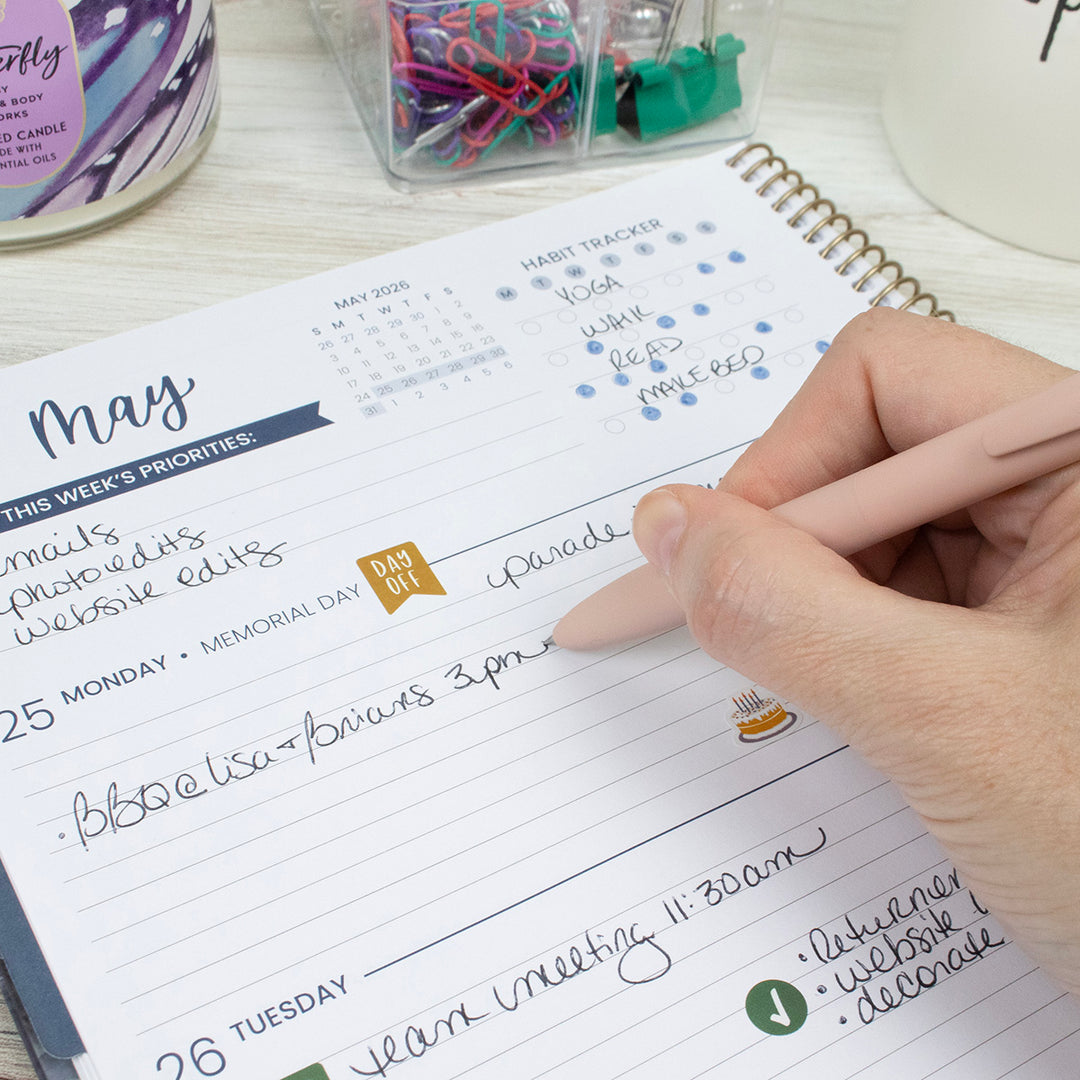 erfly
& BODY
ORKS
ED CANDLE
DE WITH
NTIAL OILS
p
MAY 2026
S M T W T F S
26 27 28 29 30 1 2
3 4 5 6 7 8 9
10 11 12 13 14 15 16
17 18 19 20 21 22 23
24 25 26 27 28 29 30
31 1 2 3 4 5 6
HABIT TRACKER
M T W T F S S
YOGA
WALK
READ
MAKE BED
May
THIS WEEK'S PRIORITIES:
emails
photo edits
website edits
25 MONDAY • MEMORIAL DAY
DAY OFF
parade
• BBQ @ Lisa + Brians 3pm
26 TUESDAY
team meeting 11:30am
• website
• decorate